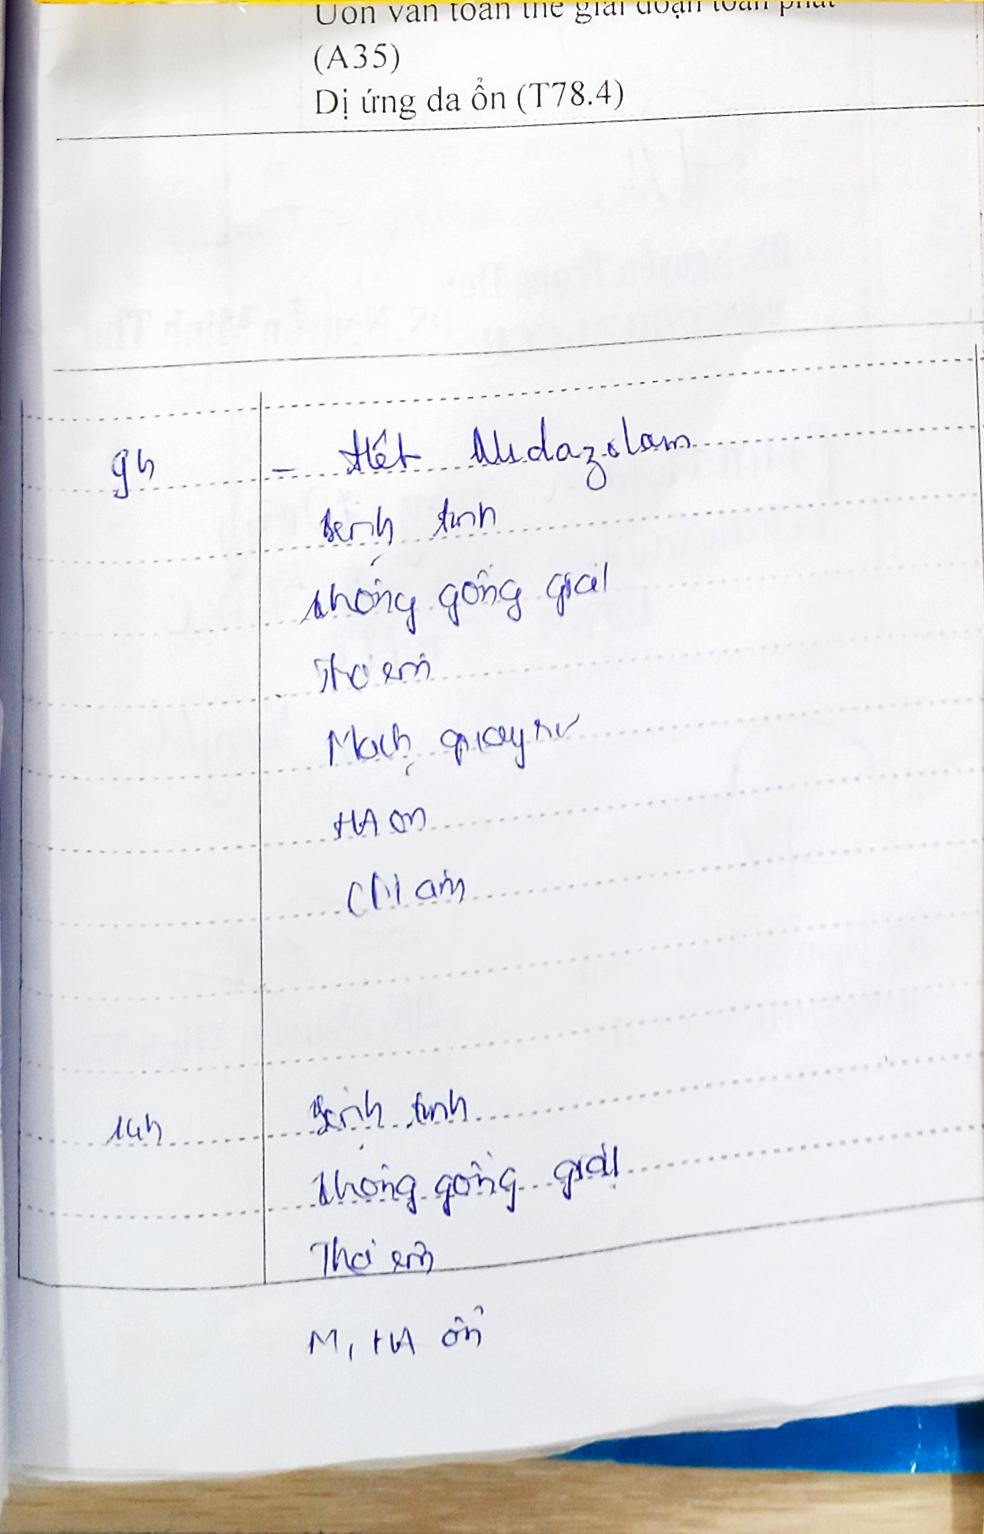 Uốn ván toàn thể giai đoạn toàn phát
(A35)
Dị ứng da ổn (T78.4)
9h
- Hết Midazolam
Bệnh tỉnh
không gồng giật
Thở êm
Mạch quay rõ
HA ổn
CMI ấm
14h
Bệnh tỉnh
không gồng giật
Thở êm
M, HA ổn